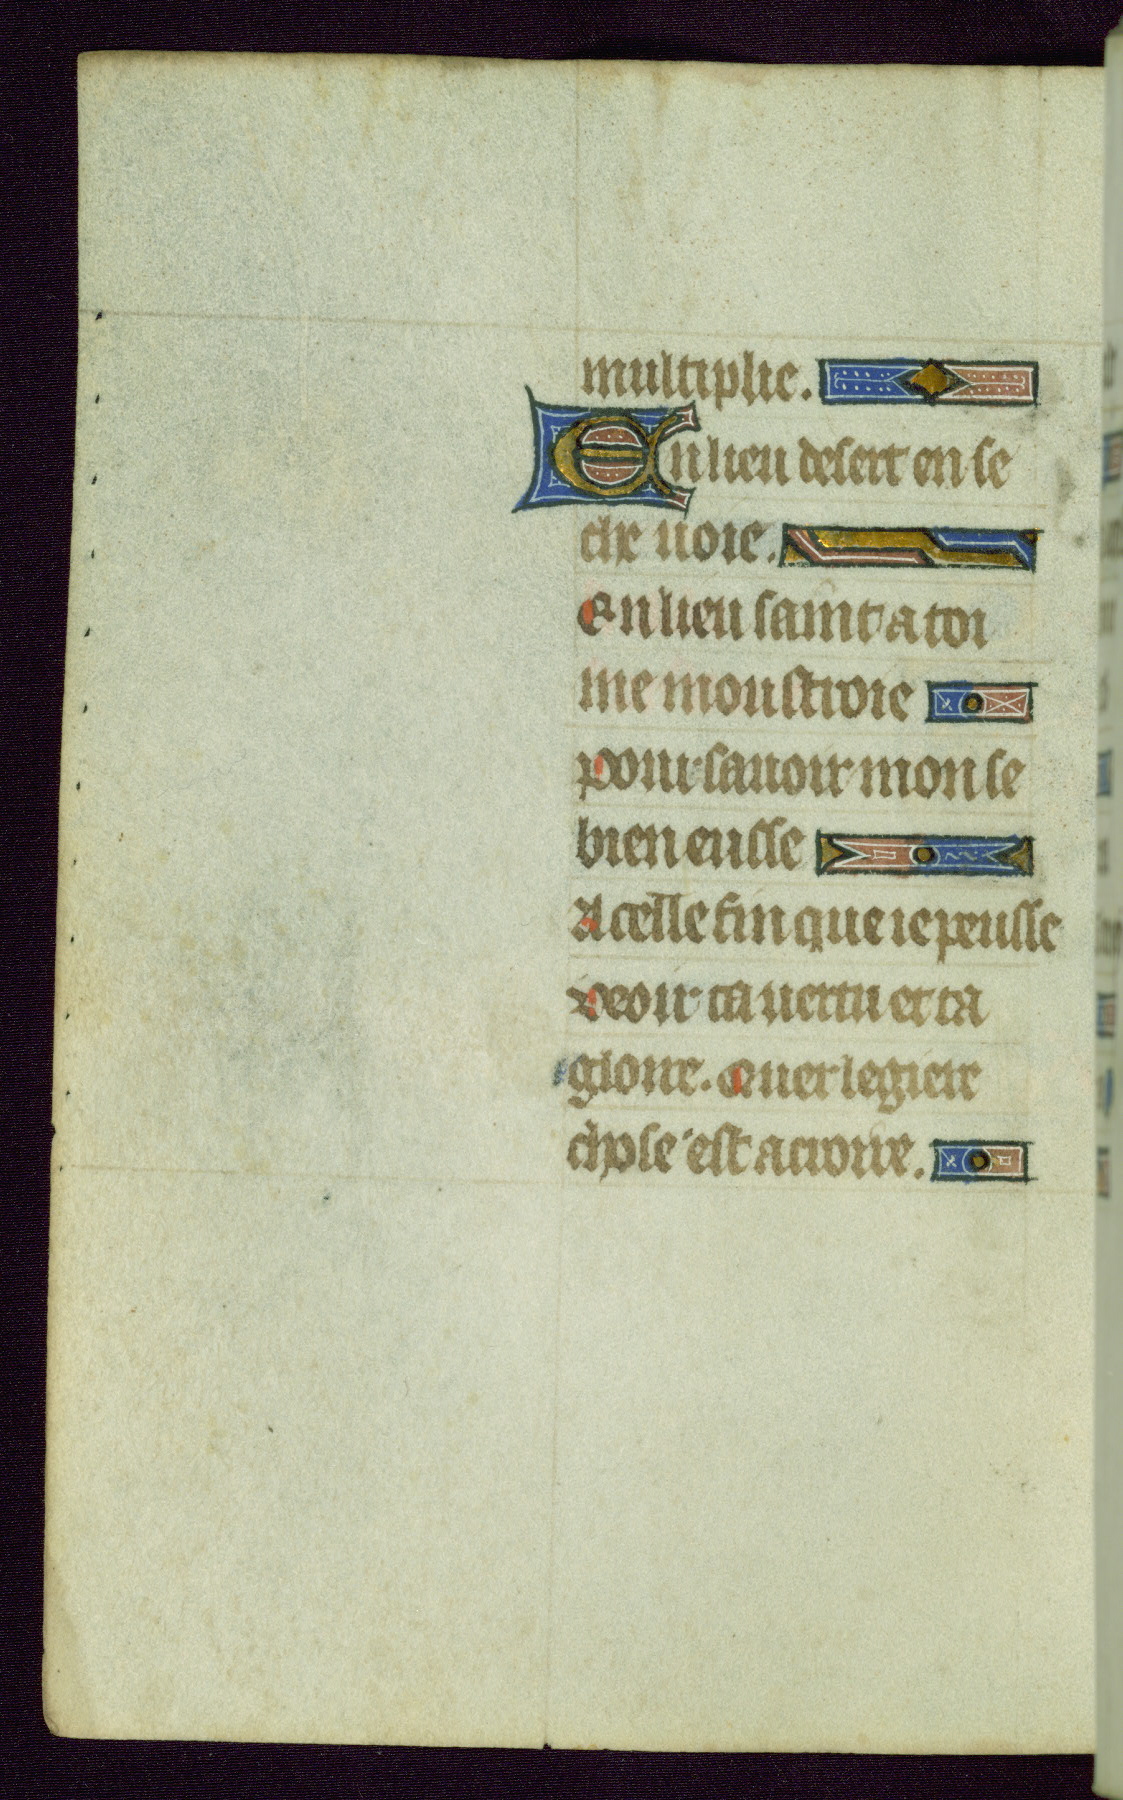 multiplie.
En lieu desert en se
che uoie.
En lieu saint a toi
me moustroie
pour sauoir mon se
bien eusse
A celle fin que ie peusse
veoir ta uertu et ta
gloire. Quer legiere
chose est a croire.